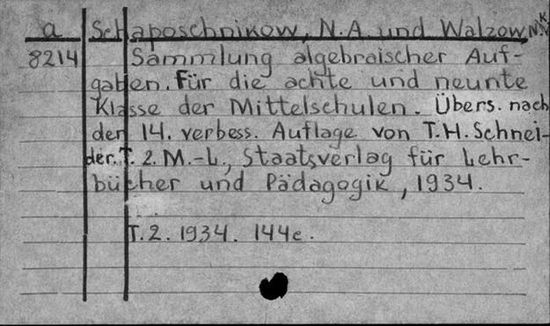 a Schaposchnikow, N.A und Walzow N.K
8214 Sammlung algebraischer Auf-
gaben. Für die achte und neunte
Klasse der Mittelschulen. Übers. nach
der 14. verbess. Auflage von T.H. Schnei-
der. T. 2. M.-L., Staatsverlag für Lehr-
bücher und Pädagogik, 1934.
T. 2. 1934. 144c.